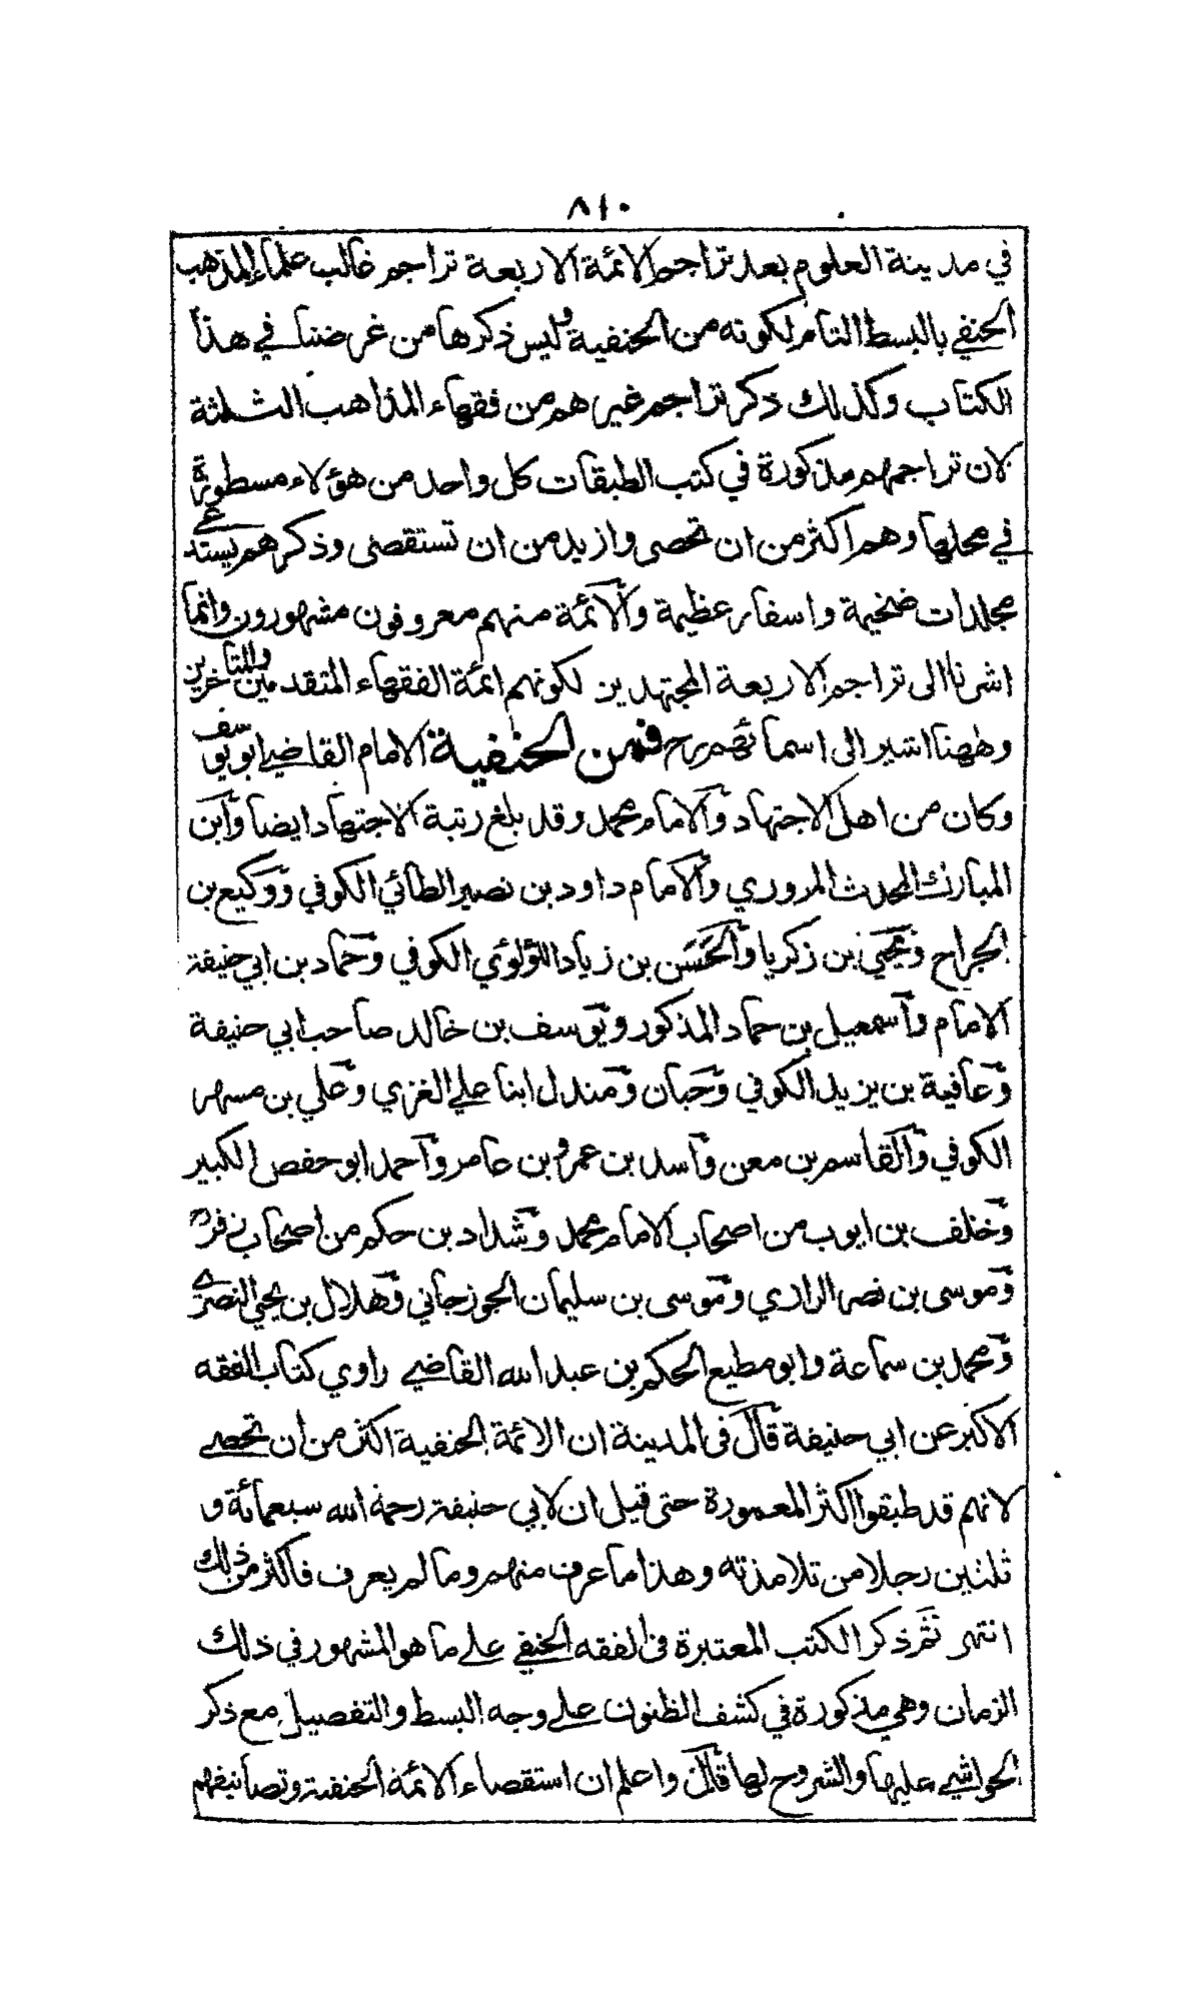 ٨١٠
في مدينة العلوم بعد تراجم الائمة الاربعة تراجم غالب علماء المذهب
الحنفي بالبسط التام لكونه من الحنفية وليس ذكرها من غرضنا في هذا
الكتاب وكذلك ذكر تراجم غيرهم من فقهاء المذاهب الثلثة
لان تراجمهم مذكورة في كتب الطبقات كل واحد من هؤلاء مسطورة
في محلها وهم اكثر من ان تحصى وازيد من ان تستقصى وذكرهم يستدعي
مجلدات ضخيمة واسفار عظيمة والائمة منهم معروفون مشهورون وانما
اشرنا الى تراجم الاربعة المجتهدين لكونهم ائمة الفقهاء المتقدمين والمتأخرين
وههنا اشير الى اسمائهم رح فمن الحنفية الامام القاضي ابو يوسف
وكان من اهل الاجتهاد والامام محمد وقد بلغ رتبة الاجتهاد ايضا وابن
المبارك المحدث المروزي والامام داود بن نصير الطائي الكوفي ووكيع بن
الجراح ويحيى بن زكريا والحسن بن زياد اللؤلوئي الكوفي وحماد بن ابي حنيفة
الامام واسمعيل بن حماد المذكور ويوسف بن خالد صاحب ابي حنيفة
وعافية بن يزيد الكوفي وحبان ومندل ابنا علي الغزي وعلي بن مسهر
الكوفي والقاسم بن معن واسد بن عمرو بن عامر واحمد ابو حفص الكبير
وخلف بن ايوب من اصحاب الامام محمد وشداد بن حكم من اصحاب زفر
وموسى بن نصر الرازي وموسى بن سليمان الجوزجاني وهلال بن يحيى النصري
ومحمد بن سماعة وابو مطيع الحكم بن عبد الله القاضي راوي كتاب الفقه
الاكبر عن ابي حنيفة قال في المدينة ان الائمة الحنفية اكثر من ان تحصى
لانهم قد طبقوا اكثر المعمورة حتى قيل ان لابي حنيفة رحمة الله سبعمائة و
ثلثين رجلا من تلامذته وهذا ما عرف منهم وما لم يعرف فاكثر من ذلك
انتهى ثم ذكر الكتب المعتبرة في الفقه الحنفي على ما هو المشهور في ذلك
الزمان وهي مذكورة في كشف الظنون على وجه البسط والتفصيل مع ذكر
الحواشي عليها والشروح لها قال واعلم ان استقصاء الائمة الحنفية وتصانيفهم